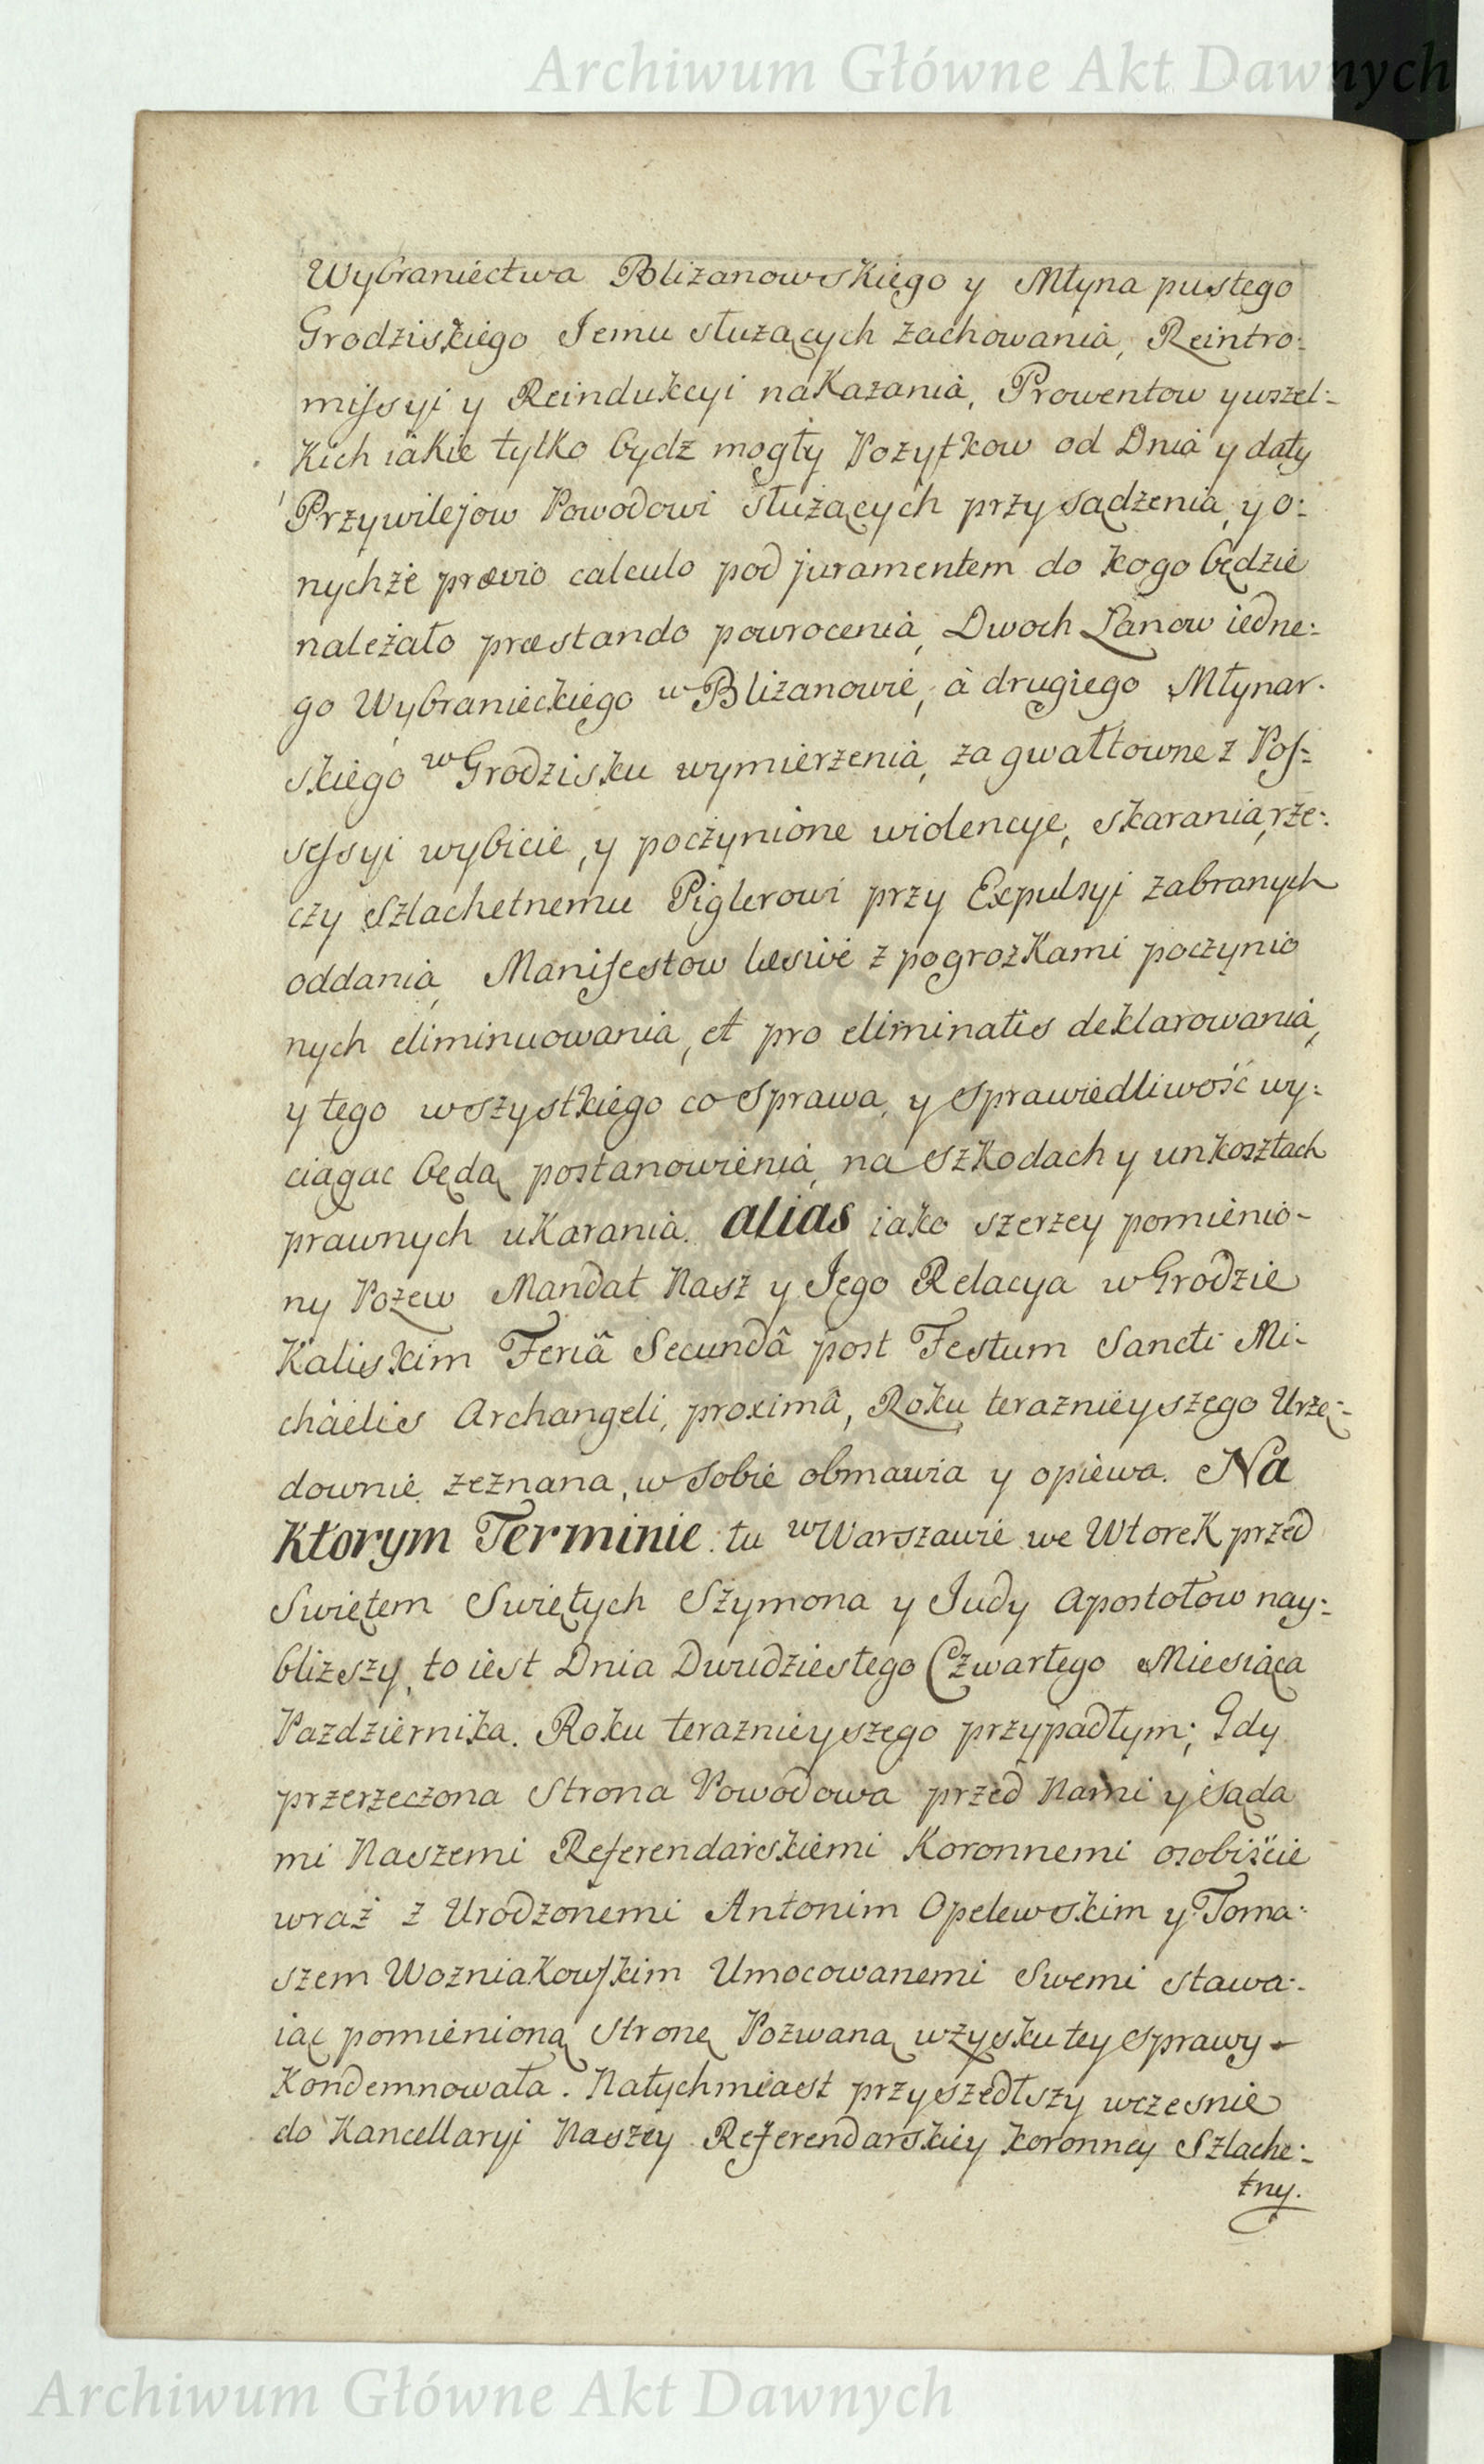 Archiwum Główne Akt Dawnych
Wybraniectwa Blizanowskiego y Młyna pustego
Grodziskiego Jemu słuzących zachowania, Reintro:
missyi y Reindukcyi nakazania, Prowentow y wszel:
kich iakie tylko bydz mogły Pozytkow od Dnia y daty
Przywilejow Powodowi słuzących przysądzenia, y o:
nychże prævio calculo pod juramentem do kogo będzie
należało præstando powrocenia, Dwoch Łanow iedne:
go Wybranieckiego w Blizanowie, à drugiego Młynar.
skiego w Grodzisku wymierzenia, za gwałtowne z Pos:
sessyi wybicie, y poczynione wiolencye, skarania, rze:
czy Szlachetnemu Piglerowi przy Expulsyi zabranych
oddania, Manifestow læsivè z pogrozkami poczynio
nych eliminuowania, et pro eliminatis deklarowania,
y tego wszystkiego co Sprawa, y Sprawiedliwość wy:
ciągac będą postanowienia, na Szkodach y unkosztach
prawnych ukarania. alias iako szerzey pomienio-
ny Pozew Mandat Nasz y Jego Relacya w Grodzie
Kaliskim Feriâ Secundâ post Festum Sancti Mi-
chäelis Archangeli, proximâ, Roku teraznieyszego Urzę:
downie zeznana, w Sobie obmawia y opiewa. Na
Ktorym Terminie tu w Warszawie we Wtorek przed
Swiętem Swiętych Szymona y Judy Apostołow nay:
blizszy, to iest Dnia Dwudziestego Czwartego Miesiąca
Pazdziernika. Roku teraznieyszego przypadłym; Gdy
przerzeczona Strona Powodowa przed Nami y Sąda
mi Naszemi Referendarskiemi Koronnemi osobiście
wraz z Urodzonemi Antonim Opelewskim y Toma:
szem Wozniakowskim Umocowanemi Swemi stawa:
iąc pomienioną Stronę Pozwaną w zysku tey Sprawy
Kondemnowała. Natychmiast przyszedłszy wczesnie
do Kancellaryi Naszey Referendarskiey Koronney Szlache:
tny.
Archiwum Główne Akt Dawnych